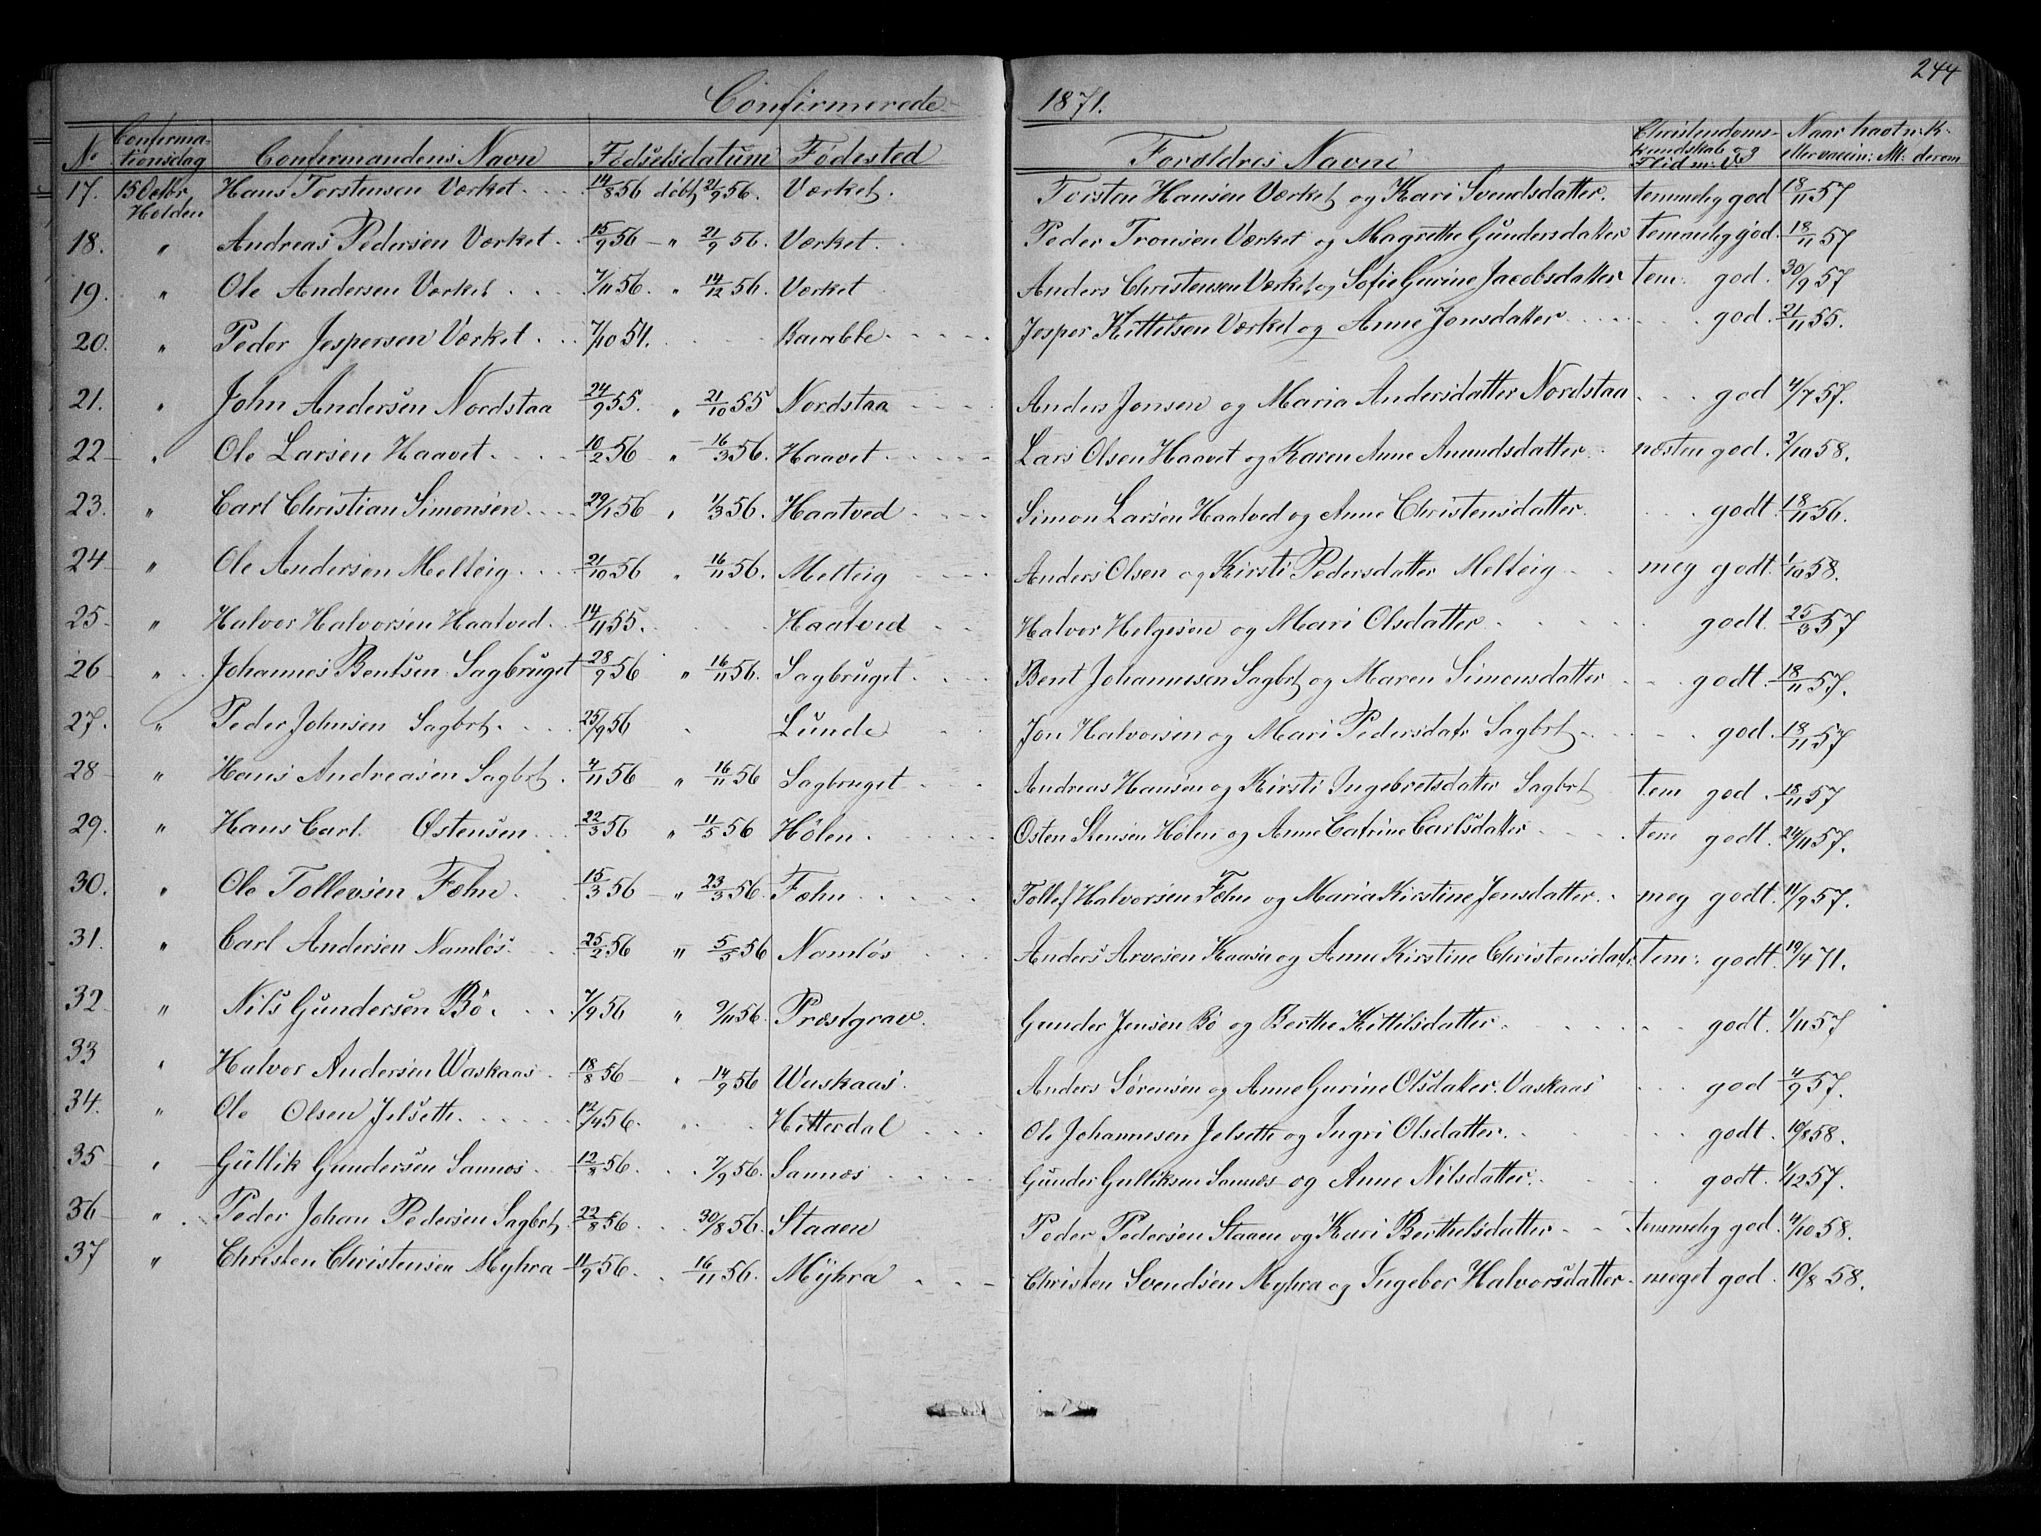 244
Confirmerede 1871.
No Confirmationsdag Confirmandens Navn Fødselsdatum Fødested Forældres Navne Christendomskundskab og Flid m: V: Naar havt n: K- eller vaccin: Att: derom
17. 15 Octbr Holden Hans Torstensen Værket 14/8 56 døbt 21/9 56. Værket. Torsten Hansen Værket og Kari Svendsdatter. temmelig god 18/11 57
18. " Andreas Pedersen Værket 15/9 56 " 21/9 56. Værket. Peder Tronsen Værket og Magrethe Gundersdatter temmelig god. 18/11 57
19. " Ole Andersen Værket 7/11 56. " 14/12 56. Værket Anders Christensen Værket og Sofie Gurine Jacobsdatter tem: god. 30/9 57
20. " Peder Jespersen Værket 7/10 54. Bamble Jesper Kittelsen Værket og Anne Jonsdatter god. 21/11 55.
21. " John Andersen Nordstaa 24/9 55. " 21/10 55 Nordstaa Anders Jonsen og Maria Andersdatter Nordstaa god 4/7 57.
22 " Ole Larsen Haavet 10/2 56 " 16/3 56. Haavet Lars Olsen Haavet og Karen Anne Amundsdatter næsten god. 2/10 58.
23. " Carl Christian Simonsen 29/1 56 " 1/3 56. Haatved Simon Larsen Haatved og Anne Christensdatter godt. 18/11 56.
24 " Ole Andersen Melteig 21/10 56 " 16/11 56. Melteig Anders Olsen og Kirsti Pedersdatter Melteig meg godt. 1/10 58.
25. " Halvor Halvorsen Haatved 14/11 55. Haatved Halvor Helgesen og Mari Olsdatter godt. 25/3 57
26 " Johannes Bentsen Sagbruget 28/9 56 " 16/11 56. Sagbruget Bent Johannesen Sagbrt og Maren Simonsdatter godt. 18/11 57.
27. " Peder Johnsen Sagbrt. 25/9 56 Lunde Jon Halvorsen og Mari Pedersdatr Sagbrt god. 18/11 57
28 " Hans Andreasen Sagbrt 4/11 56 " 16/11 56 Sagbruget Andreas Hansen og Kirsti Ingebretsdatter Sagbrt tem god. 18/11 57
29. " Hans Carl Østensen 22/3 56 " 11/5 56 Hølen. Osten Stensen Hølen og Anne Catrine Carlsdatter tem godt. 24/11 57.
30. " Ole Tollevsen Fæhn. 15/3 56 " 23/3 56. Fæhn Tollef Halvorsen Fæhn og Maria Kirstine Jensdatter meg godt. 11/9 57.
31. " Carl Andersen Namløs. 25/2 56 " 5/5 56 Namløs Anders Arvesen Kaasa og Anne Kirstine Christensdatr tem: godt. 19/4 71.
32 " Nils Gundersen Bö. 7/9 56 " 9/11 56. Præstgrav. Gunder Jensen Bö og Berthe Kittilsdatter godt. 1/11 57
33 " Halvor Andersen Waskaas 18/8 56 " 14/9 56 Waskaas. Anders Sørensen og Anne Gurine Olsdatter. Vaskaas god 4/9 57.
34. " Ole Olsen Jelseth. 12/4 56. " Hitterdal Ole Johannesen Jelseth og Ingri Olsdatter. godt. 10/8 58.
35 " Gullik Gundersen Sannes 12/8 56. 7/9 56. Sannes Gunder Gulliksen Sannes og Anne Nilsdatter. godt. 1/12 57.
36 " Peder Johan Pedersen Sagbrt. 22/8 56. 30/8 56. Staaen Peder Pedersen Staaen og Kari Berthelsdatter temmelig god. 4/10 58.
37 " Christen Christensen Myhra 11/9 56. 16/11 56. Myhra Christen Svendsen Myhra og Ingebor Halvorsdatter meget god. 10/8 58.